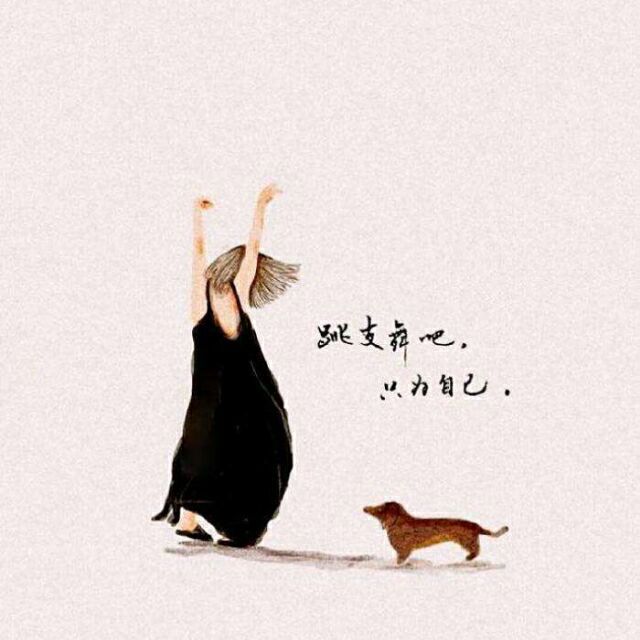 跳支舞吧，
只为自己．